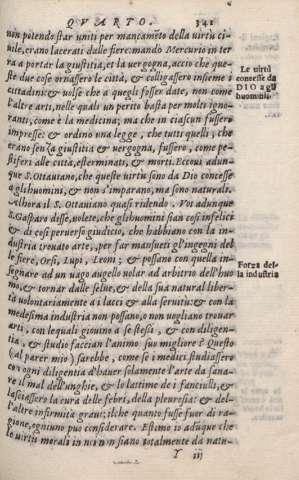 QVARTO. 341
non potendo star uniti per mancameto della virtu ci-
uile, erano lacerati dalle fiere: mando Mercurio in ter
ra a portar la giustitia, et la uergogna, accio che que-
ste due cose ornassero le città, & colligassero insieme i
cittadini: & uolse che a quegli fosser date, non come
l'altre arti, nelle quali un perito basta per molti igno-
ranti, come è la medicina; ma che in ciascun fussero
impresse: & ordino una legge, che tutti quelli, che
erano senza giustitia & uergogna, fussero, come pe-
stiferi alle città, esterminati, & morti. Eccoui adun-
que S. Ottauiano, che queste uirtù sono da Dio concesse
a gli huomini, & non s'imparano, ma sono naturali.
Allhora il S. Ottauiano quasi ridendo. Voi adunque
S. Gasparo disse, uolete, che gli huomini sian così infelici
& di così peruerso giudicio, che habbiano con la in-
dustria trouato arte, per far mansueti gl'ingegni del
le fiere, Orsi, Lupi, Leoni; & possano con quella in-
segnare ad un uago augello uolar ad arbitrio dell'huo
mo, & tornar dalle selue, & della sua natural liber-
tà uolontariamente a i lacci & alla seruitù: & con la
medesima industria non possano, o non uogliano trouar
arti, con lequali giouino a se stessi, & con diligen-
tia, & studio faccian l'animo suo migliore? Questo
(al parer mio) sarebbe, come se i medici studiassero
con ogni diligentia d'hauer solamente l'arte da sana-
re il mal dell'unghie, & lo lattime de i fanciulli, &
lasciassero la cura delle febri, della pleuresia: & del-
l'altre infirmità graui; ilche quanto fusse fuor di ra-
gione, ogniuno può considerare. Estimo io adūque che
le uirtù morali in noi non siano totalmente da natu-
Y iij
Le uirtù
concesse da
DIO agli
huomini.
Forza del-
la industria